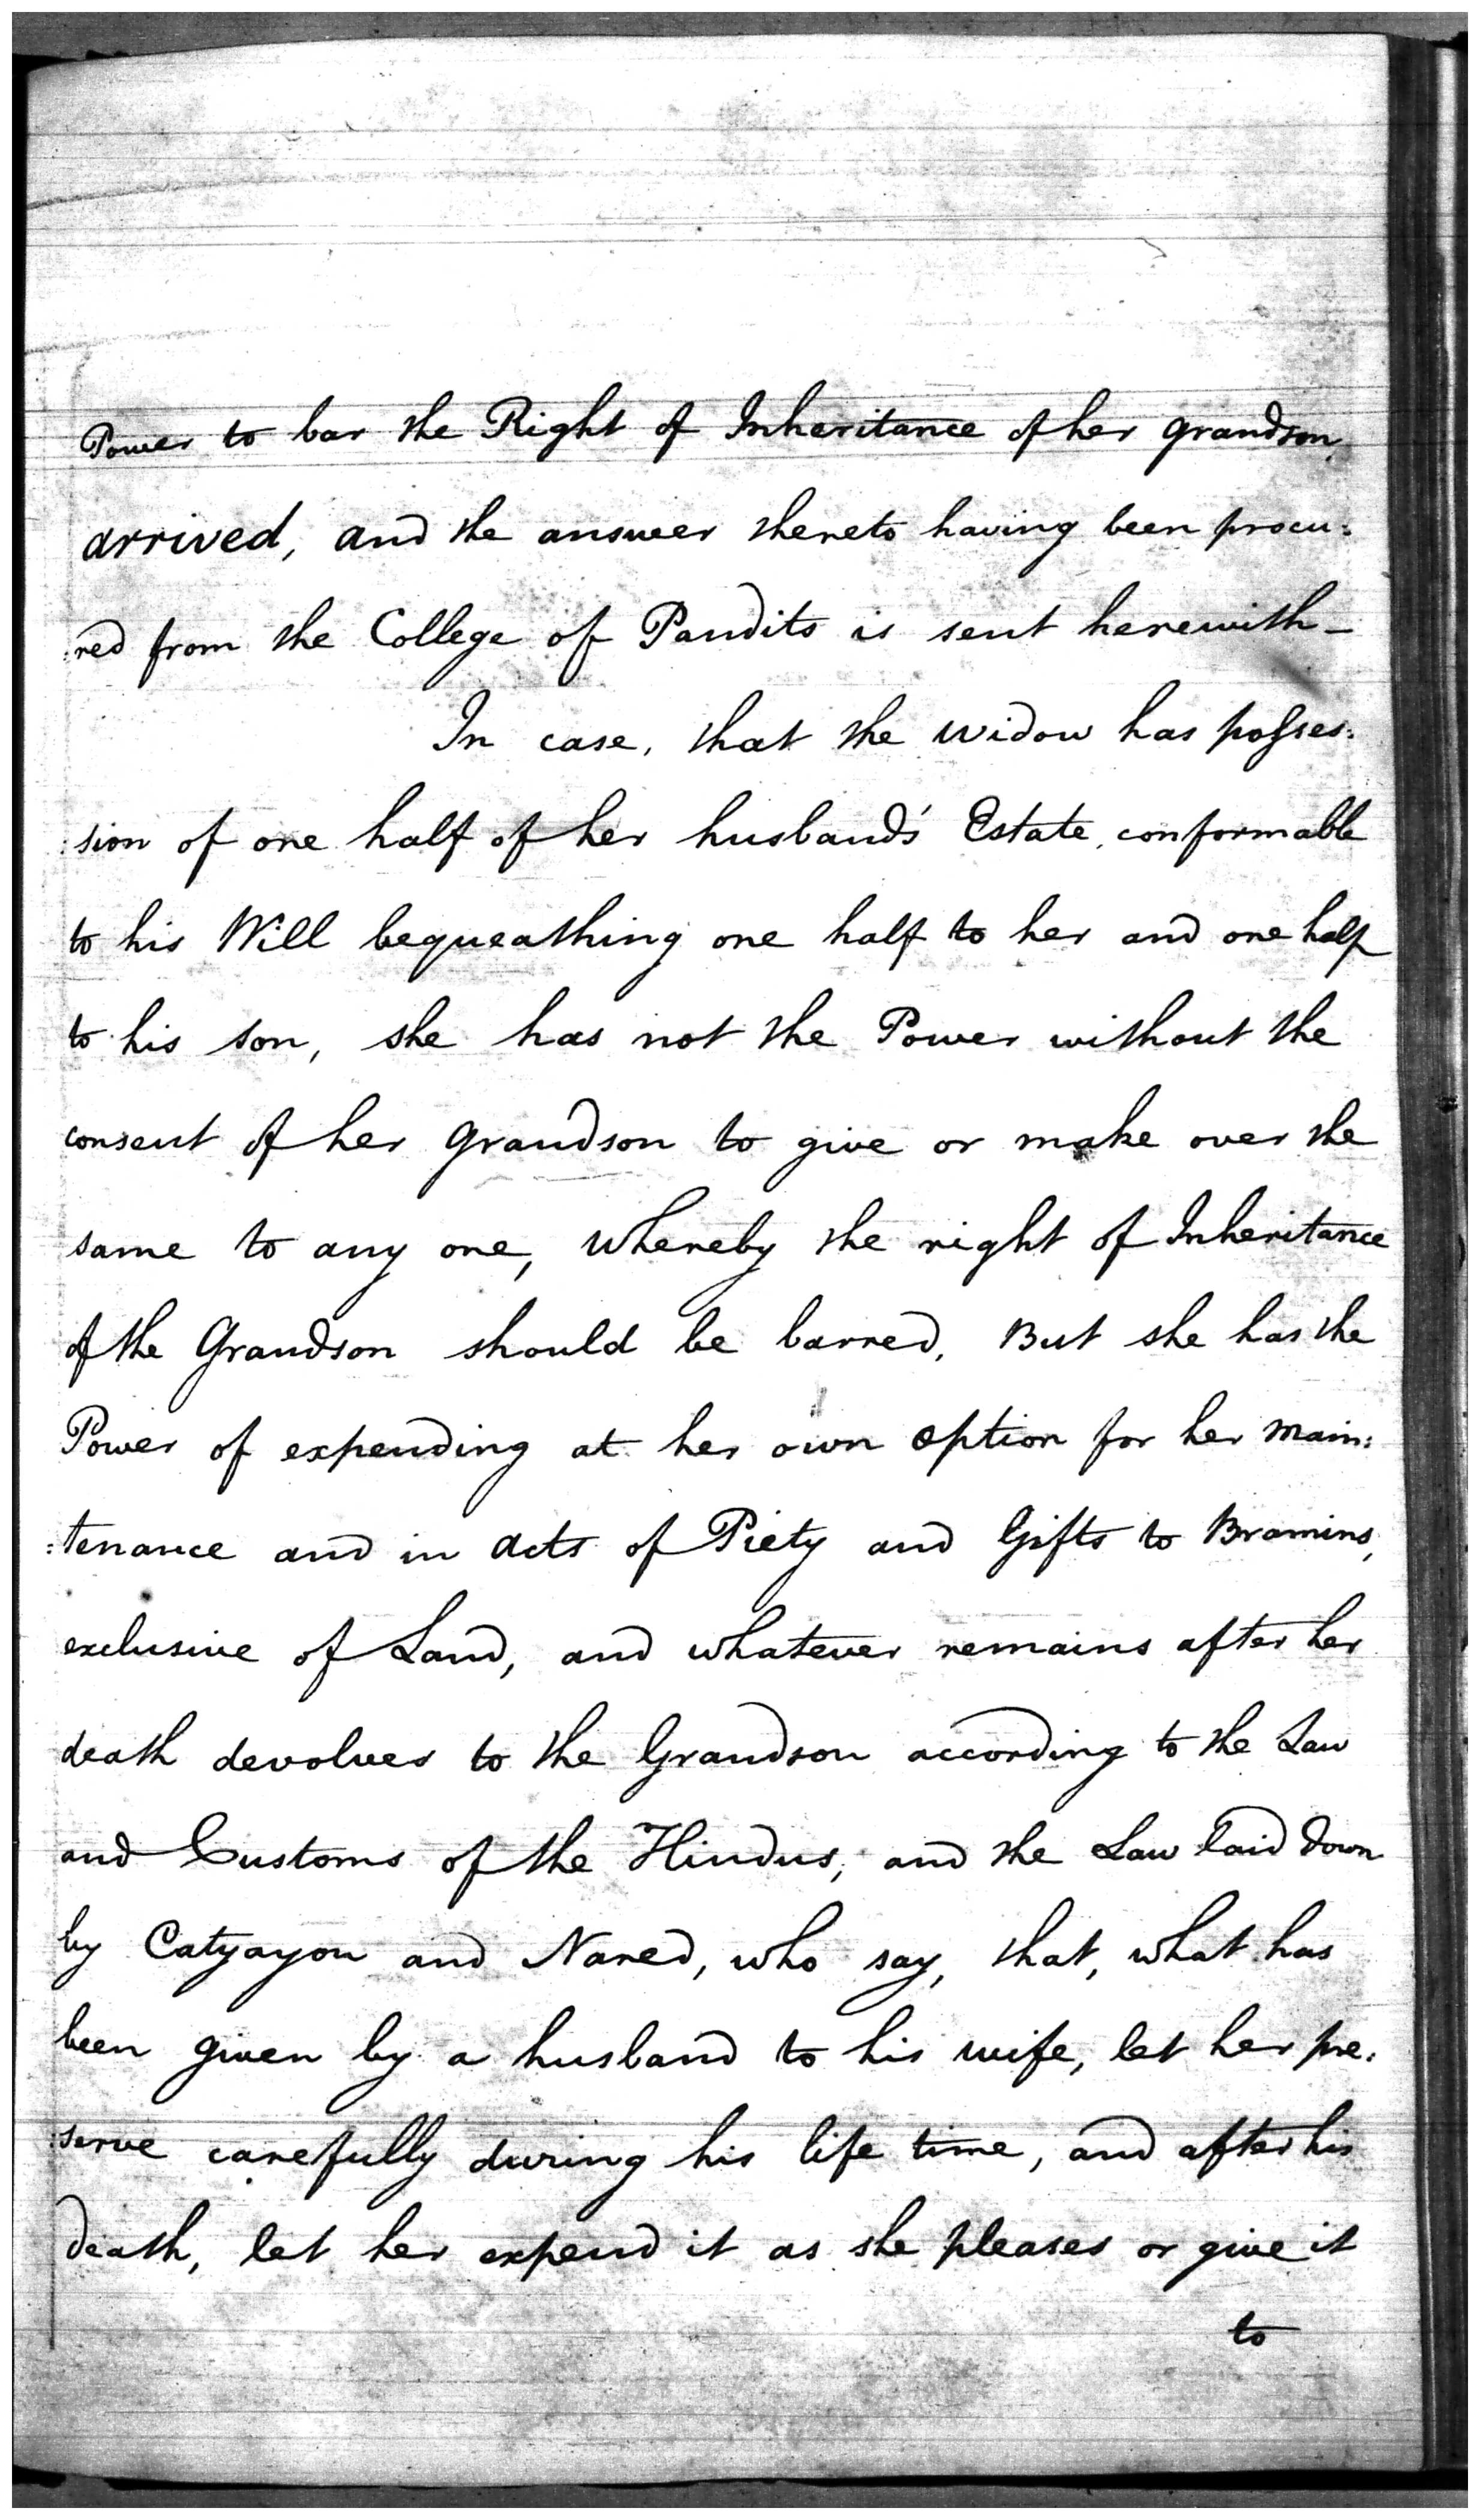 Power to bar the Right of Inheritance of her grandson,
arrived, and the answer thereto having been procu:
:red from the College of Pandits is sent herewith_
In case, that the widow has posses:
:sion of one half of her husband's Estate, conformable
to his Will bequeathing one half to her and one half
to his son, she has not the Power without the
consent of her grandson to give or make over the
same to any one, whereby the right of Inheritance
of the Grandson should be barred, But she has the
Power of expending at her own option for her main:
:tenance and in acts of Piety and Gifts to Bramins,
exclusive of Land, and whatever remains after her
death devolves to the Grandson according to the Law
and Customs of the Hindus, and the Law laid down
by Catyayon and Nared, who say, that, what has
been given by a husband to his wife, let her pre:
:serve carefully during his life time, and after his
death, let her expend it as she pleases or give it
to